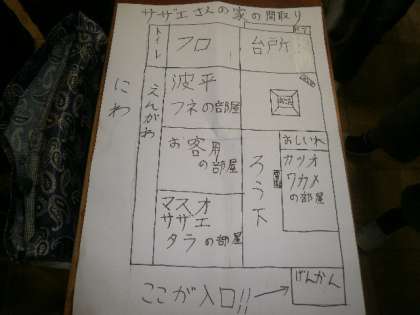 サザエさんの家の間取り
トイレ
フロ
台所
にわ
えんがわ
波平
フネの部屋
お客用
の部屋
ろう下
おしいれ
カツオ
ワカメ
の部屋
マスオ
サザエ
タラの部屋
ここが入口!!→
げんかん